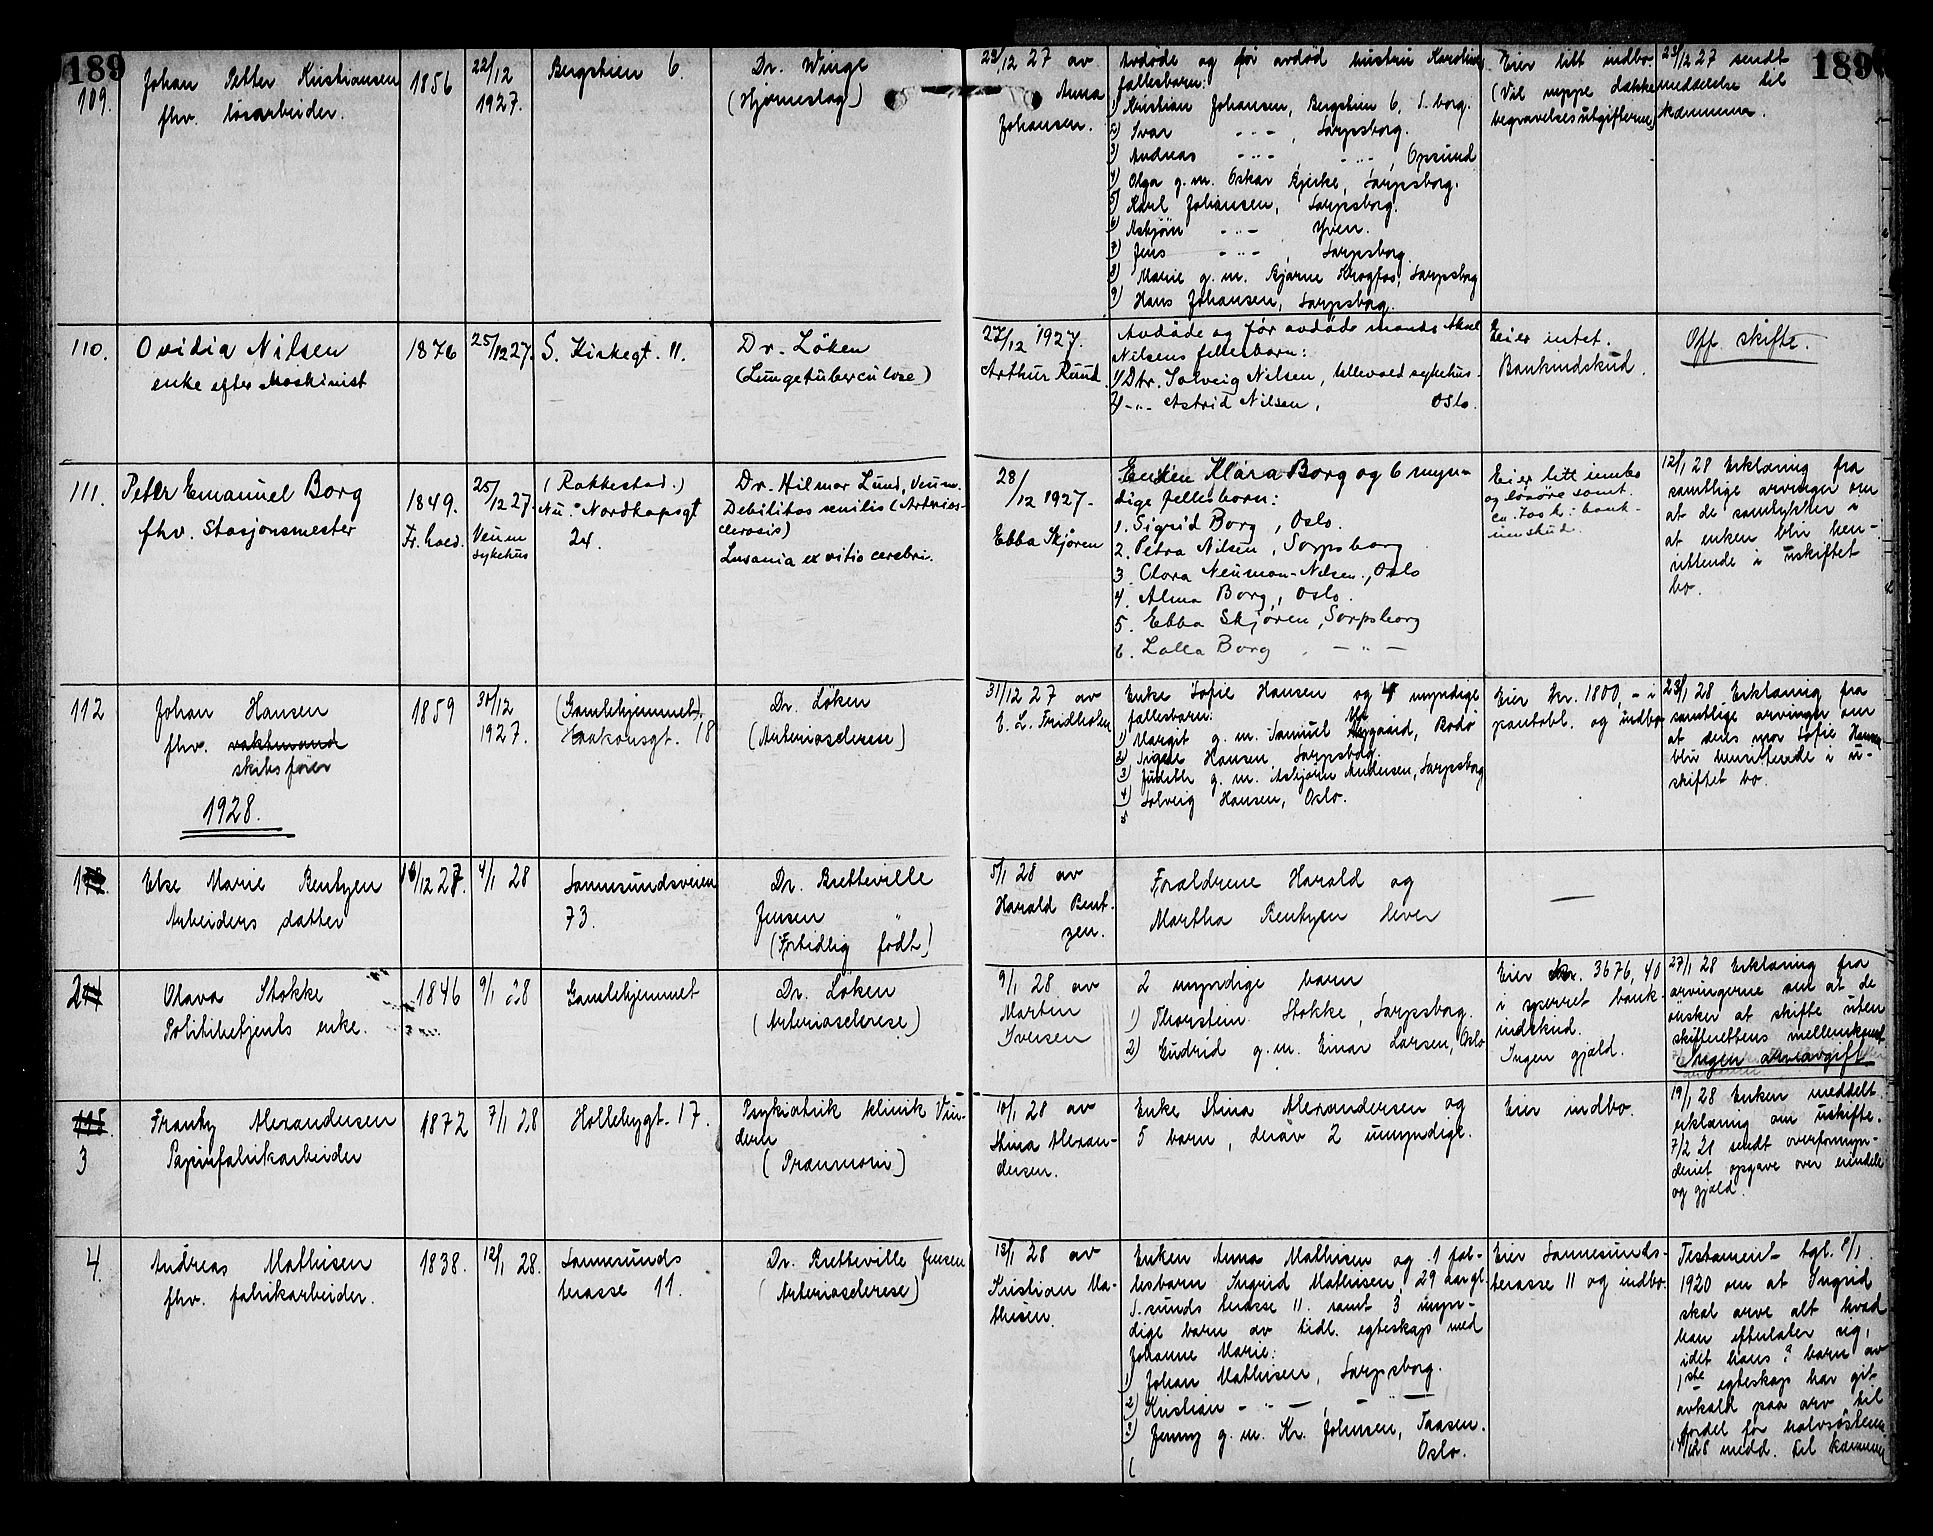 189
189
109.
Johan Petter Kristiansen
fhv. løsarbeider.
1856
22/12
1927.
Bergstien 6.
Dr. Winge
(Hjerneslag)
22/12 27 av
Anna
Johansen.
Avdøde og før avdød hustru Karoline
fællesbarn:
1) Kristian Johansen, Bergstien 6, S.borg.
2) Ivar -"- , Sarpsborg.
3) Andreas -"- , -"- , Opsund
4) Olga g.m. Oskar Bjerke, Sarpsborg.
5) Karl Johansen, Sarpsborg.
6) Asbjørn -"- , Yven.
7) Jens -"- , Sarpsborg.
8) Marie g.m. Bjarne Krogfos, Sarpsborg
9) Hans Johansen, Sarpsborg.
Eier litt indbo
(Vil neppe dække
begravelsesutgifterne)
23/12 27 sendt
meddelelse til
kæmneren.
110.
Ovidia Nilsen
enke efter Maskinist
1876
25/12 27.
S. Kirkegt. 11.
Dr. Löken
(Lungetuberculose)
27/12 1927.
Arthur Ruud.
Avdøde og før avdøde mands Aksel
Nilsens fellesbarn:
1) Dtr. Solveig Nilsen, Ullevold sykehus.
2) -"- Astrid Nilsen, Oslo.
Eier intet.
Bankindskud.
Off. skifte.
111.
Peter Emanuel Borg
fhv. Stasjonsmester
1849.
Fr.hald.
25/12 27.
Veum
sykehus
(Rakkestad.)
Nu: Nordkapsgt
24.
Dr. Hilmar Lund, Veum.
Debilitas senilis (Arterios-
clerosis)
Insania ex vitio cerebri.
28/12 1927.
Ebba Skjøren
Enken Klara Borg og 6 myn-
dige fellesborn:
1. Sigrid Borg, Oslo.
2. Petra Nilsen, Sarpsborg
3. Clara Neuman-Nilsen, Oslo
4. Alma Borg, Oslo.
5. Ebba Skjøren, Sarpsborg
6. Lalla Borg , -"-
Eier litt innbo
og løsøre samt
bank-
innskud.
12/1 28 Erklæring fra
samtlige arvinger om
at de samtykker i
at enken blir hen-
sittende i uskiftet
bo.
112
Johan Hansen
fhv. vaktmand
skibsfører
1859
30/12
1927.
(Gamlehjemmet)
Haakonsgt. 18
Dr. Løken
(Arteriosclerose)
31/12 27 av
E. L. Fridholm
Enke Sofie Hansen og 4 myndige
fællesbarn:
1) Margit g.m. Samuel Nygaard, Bodø
2) Signe Hansen, Sarpsborg
3) Judith g.m. Asbjørn Andersen, Sarpsborg
4) Solveig Hansen, Oslo.
5
Eier kr. 1800,- i
pantobl. og indbo
23/1 28 Erklæring fra
samtlige arvinger om
at deres mor Sofie Hansen
blir hensittende i u-
skiftet bo.
1928.
1
Else Marie Bentzen
Arbeiders datter
16/12 27.
4/1 28
Sannesundsveien
73.
Dr. Bretteville
Jensen
(Fortidlig født)
5/1 28 av
Harald Bent-
zen.
Forældrene Harald og
Martha Bentzen lever
—
2
Olava Stokke
Politibetjents enke.
1846
9/1 28
Gamlehjemmet
Dr. Løken
(Arteriosclerose)
9/1 28 av
Martin
Iversen
2 myndige barn
1) Thorstein Stokke, Sarpsborg.
2) Gudrid g.m. Einar Larsen, Oslo
Eier kr. 3676,40
i sperret bank-
indskud.
Ingen gjæld.
27/1 28 Erklæring fra
arvingerne om at de
ønsker at skifte uten
skifterettens mellemkomst
Ingen arveavgift
115.
3
Frantz Alexandersen
Papirfabrikarbeider
1872
7/1 28
Hollebygt. 17.
Psykiatrik klinik Vin-
dern
(Pneumoni)
10/1 28 av
Stina Alexan-
dersen.
Enke Stina Alexandersen og
5 barn, derav 2 umyndige.
Eier indbo.
19/1 28 Enken meddelt
erklæring om uskifte.
7/2 28 sendt overformyn-
deriet opgave over eiendele
og gjæld.
4.
Andreas Mathisen
fhv. fabrikarbeider.
1838.
12/1 28.
Sannesunds
terasse 11.
Dr. Bretteville Jensen
(Arteriosclerose)
13/1 28 av
Kristian Ma-
thisen.
Enken Anna Mathisen og 1 fæl-
lesbarn Ingrid Mathisen, 29 aar gl.
S.sunds terasse 11. samt 3 myn-
dige barn av tidl. egteskap med
Johanne Marie:
1) Johan Mathisen, Sarpsborg.
2) Kristian -"- , -"-
3) Jenny g.m. Kr. Johnsen, Taasen.
Oslo.
Eier Sannesunds-
terasse 11 og indbo.
Testament tgl. 9/1
1920 om at Ingrid
skal arve alt hvad
han efterlater sig,
idet hans 3 barn av
1ste egteskap har git
avkald paa arv til
fordel for halvsøsteren
14/1 28 medd. til kæmner